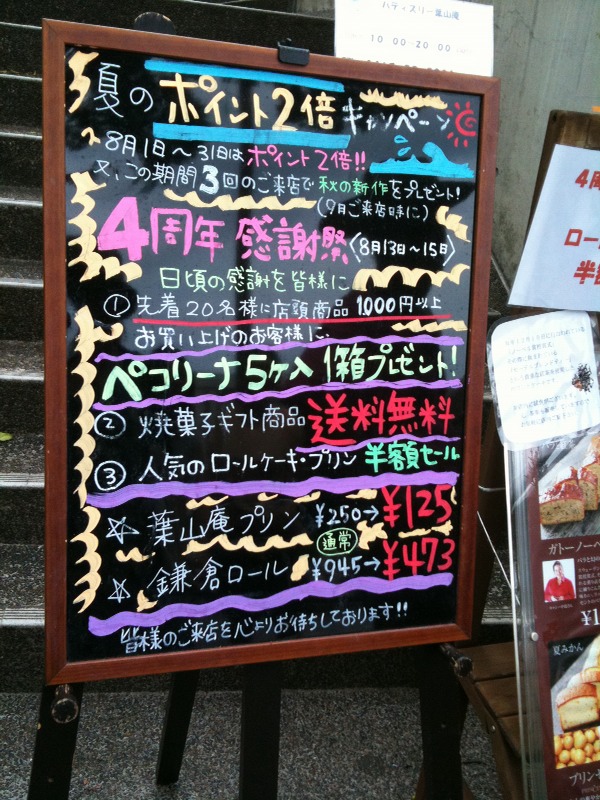 パティスリー葉山庵
10:00-20:00
夏のポイント2倍キャンペーン
8月1日～31日はポイント2倍!!
又、この期間3回のご来店で秋の新作をプレゼント!
(9月ご来店時に)
4周年 感謝祭〈8月13日～15日〉
日頃の感謝を皆様に
① 先着20名様に店頭商品 1000円以上
お買い上げのお客様に、
ペコリーナ5ケ入 1箱プレゼント!
② 焼菓子ギフト商品送料無料
③ 人気のロールケーキ・プリン 半額セール
☆ 葉山庵プリン ¥250→¥125
通常
☆ 鎌倉ロール ¥945→¥473
皆様のご来店を心よりお待ちしております!!
4周
ロー
半額
ガトーノーベ
¥1
夏みかん
プリン